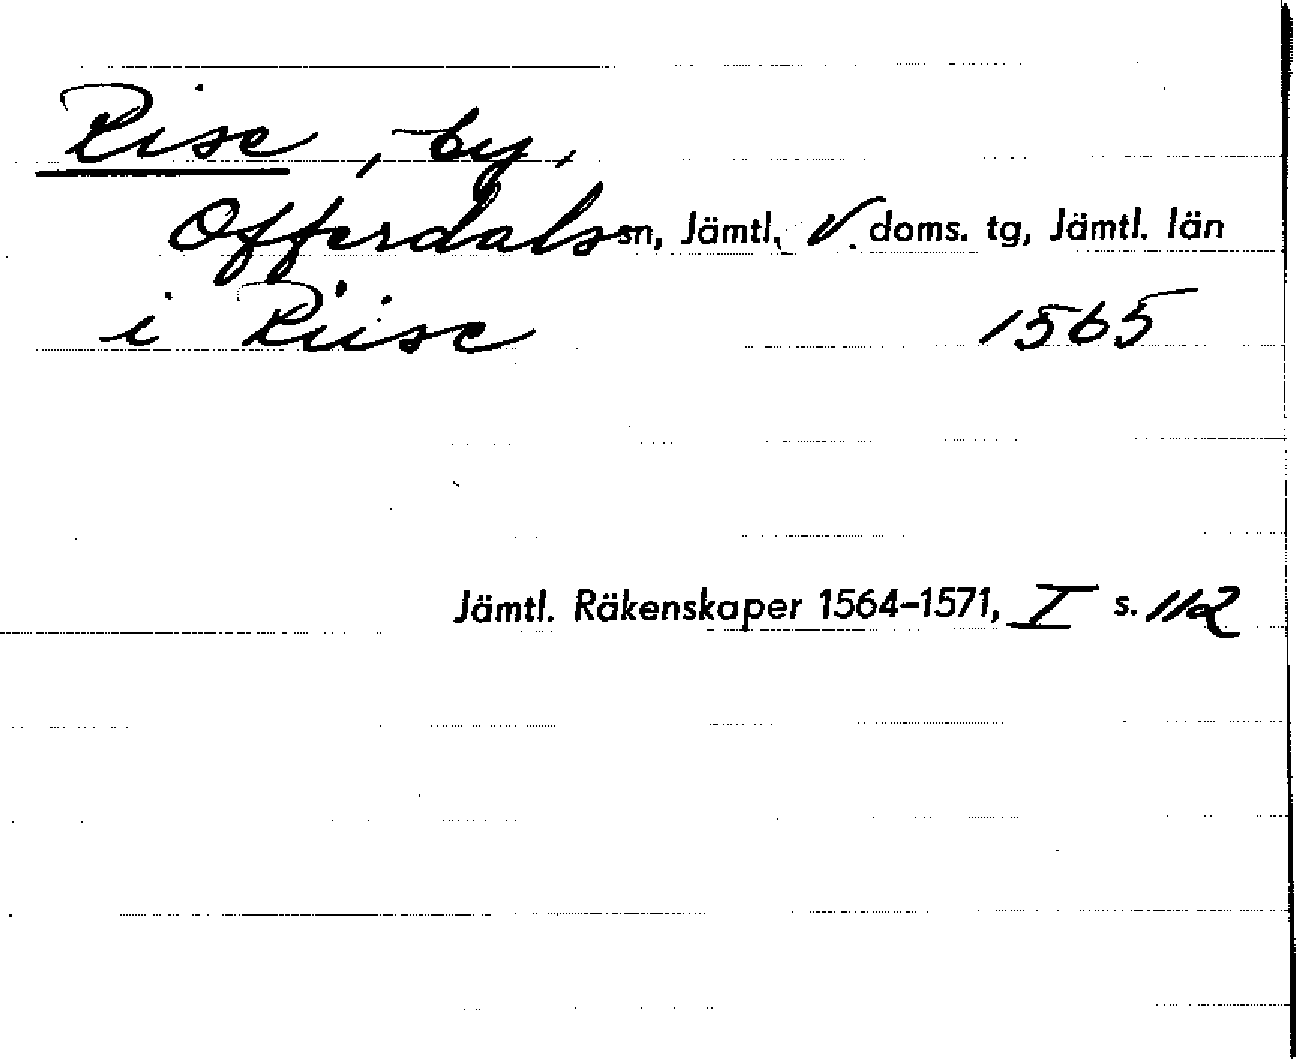 Rise, by,
Offerdals sn, Jämtl. V. doms. tg, Jämtl. län
i Riise 1565
Jämtl. Räkenskaper 1564-1571, I s. 112